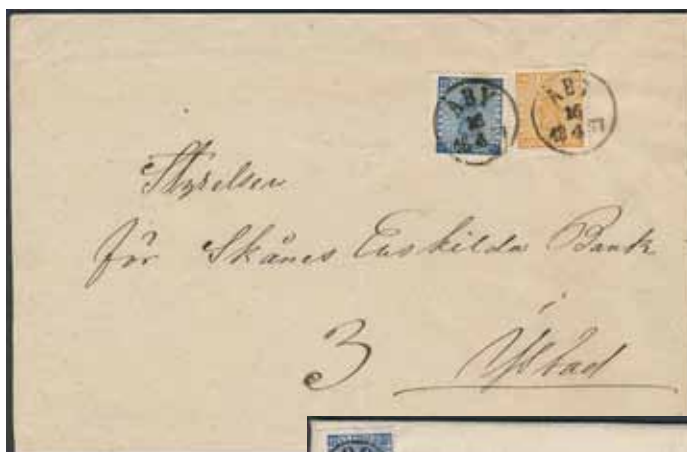 ÅBY ÅBY
16 16
4 4
Styrelsen
för Skånes Enskilda Bank
i
3 Ystad